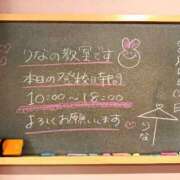 りなの教室です
本日の登校時刻
10:00~18:00
よろしくお願いします
りな